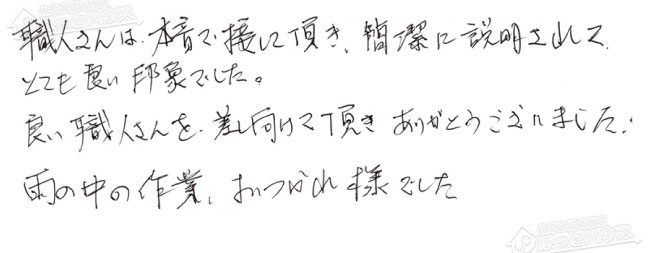 職人さんは、本音で接して頂き、簡潔に説明されて、
とても良い印象でした。
良い職人さんを、差し向けて頂きありがとうございました。
雨の中の作業、おつかれ様でした